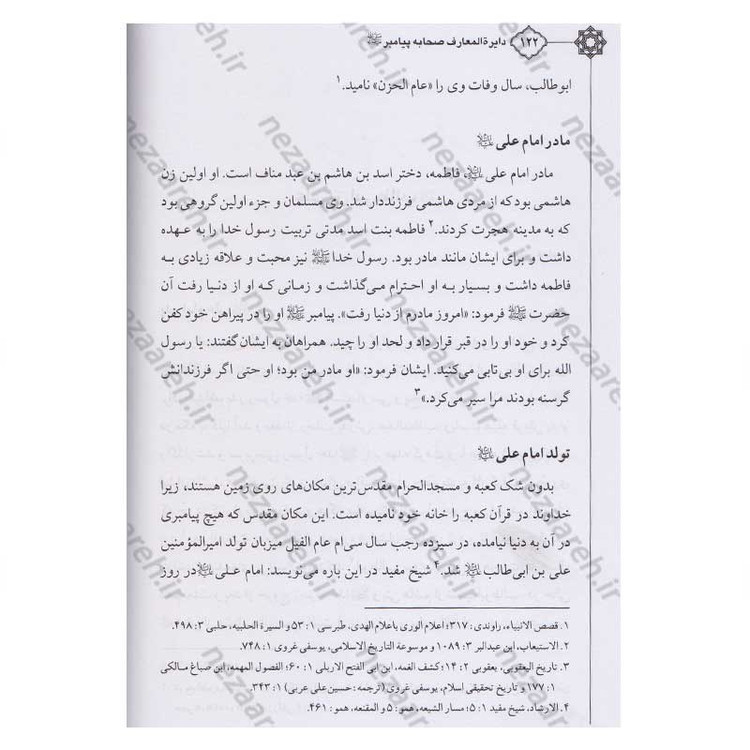 ۱۲۲ دایرة‌المعارف صحابه پیامبر ﷺ
ابوطالب، سال وفات وی را «عام الحزن» نامید.۱
مادر امام علی علیه‌السلام
مادر امام علی علیه‌السلام، فاطمه، دختر اسد بن هاشم بن عبد مناف است. او اولین زن
هاشمی بود که از مردی هاشمی فرزنددار شد. وی مسلمان و جزء اولین گروهی بود
که به مدینه هجرت کردند.۲ فاطمه بنت اسد مدتی تربیت رسول خدا را به عهده
داشت و برای ایشان مانند مادر بود. رسول خدا ﷺ نیز محبت و علاقه زیادی به
فاطمه داشت و بسیار به او احترام می‌گذاشت و زمانی که او از دنیا رفت آن
حضرت ﷺ فرمود: «امروز مادرم از دنیا رفت». پیامبر ﷺ او را در پیراهن خود کفن
کرد و خود او را در قبر قرار داد و لحد او را چید. همراهان به ایشان گفتند: یا رسول
الله برای او بی‌تابی می‌کنید. ایشان فرمود: «او مادر من بود؛ او حتی اگر فرزندانش
گرسنه بودند مرا سیر می‌کرد.»۳
تولد امام علی علیه‌السلام
بدون شک کعبه و مسجدالحرام مقدس‌ترین مکان‌های روی زمین هستند، زیرا
خداوند در قرآن کعبه را خانه خود نامیده است. این مکان مقدس که هیچ پیامبری
در آن به دنیا نیامده، در سیزده رجب سال سی‌ام عام الفیل میزبان تولد امیرالمؤمنین
علی بن ابی‌طالب علیه‌السلام شد.۴ شیخ مفید در این باره می‌نویسد: امام علی علیه‌السلام در روز
۱. قصص الانبیاء، راوندی: ۳۱۷؛ اعلام الوری باعلام الهدی، طبرسی ۱: ۵۳ و السیرة الحلبیه، حلبی ۳: ۴۹۸.
۲. الاستیعاب، ابن عبدالبر ۳: ۱۰۸۹ و موسوعة التاریخ الاسلامی، یوسفی غروی ۱: ۷۴۸.
۳. تاریخ الیعقوبی، یعقوبی ۲: ۱۴؛ کشف الغمه، ابن ابی الفتح الاربلی ۱: ۶۰؛ الفصول المهمه، ابن صباغ مالکی
۱: ۱۷۷ و تاریخ تحقیقی اسلام، یوسفی غروی (ترجمه: حسین‌علی عربی) ۱: ۳۴۳.
۴. الارشاد، شیخ مفید ۱: ۵؛ مسار الشیعه، همو: ۵ و المقنعه، همو: ۴۶۱.
nezaareh.ir